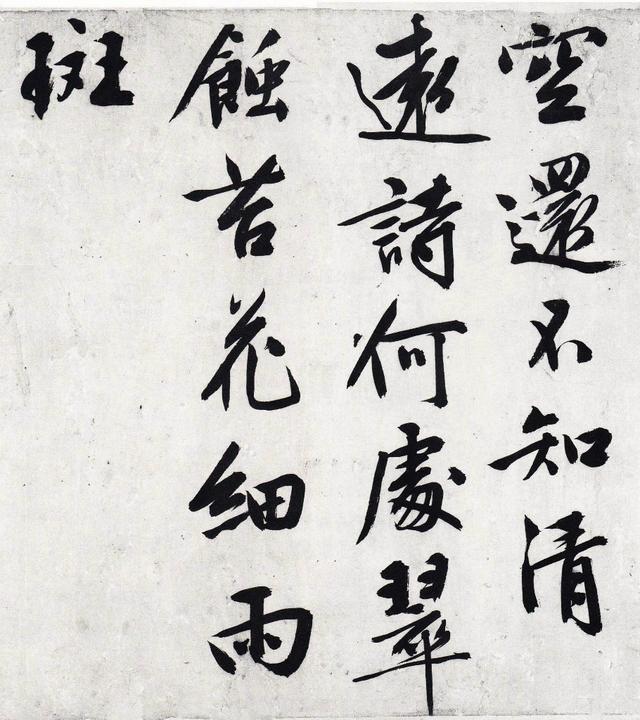 空還不知清
遠詩何處翠
蝕苔花細雨
斑